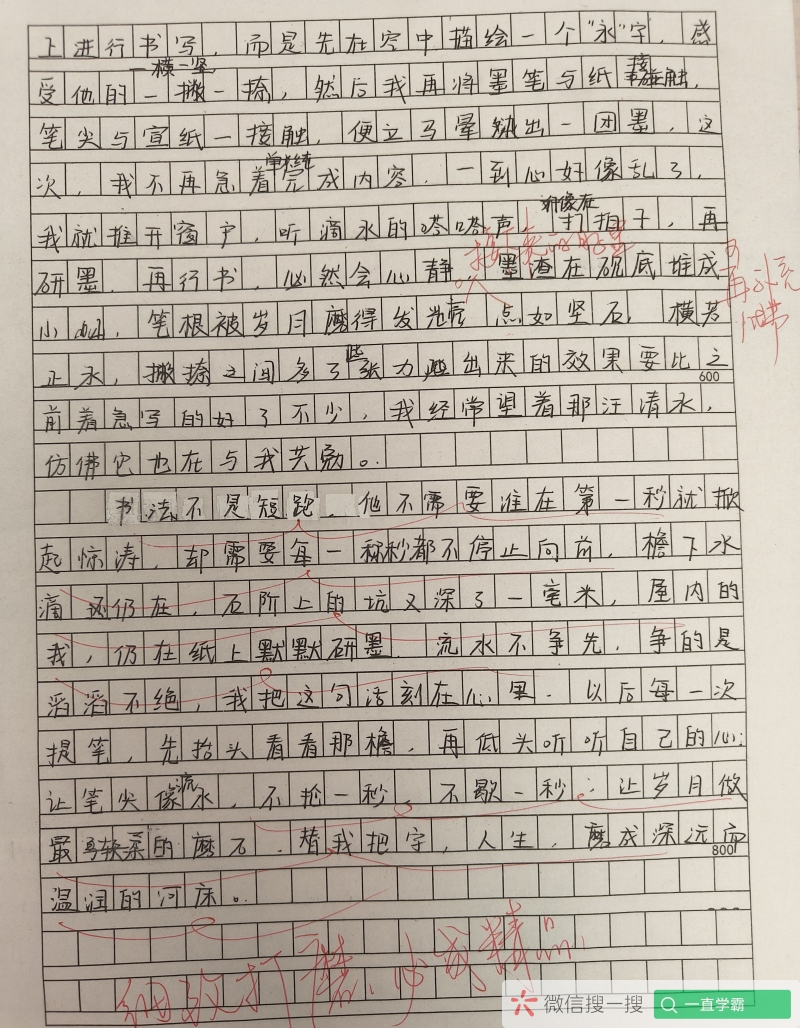 上进行书写，而是先在空中描绘一个“永”字，感
受他的一横一竖一撇一捺，然后我再将墨笔与纸接触，
笔尖与宣纸一接触，便立马晕出一团墨，这
次，我不再急着单纯完成内容，一到心好像乱了，
我就推开窗户，听滴水的嗒嗒声，听像在打拍子，再
研墨，再行书，必然会心静。墨渣在砚底堆成
小山，笔根被岁月磨得发，点如坚石，横若
正水，撇捺之间多了些张力，出来的效果要比之
600
前着急写的好了不少，我经常望着那汪清水，
仿佛它也在与我共勉。
书法不是短跑，他不需要谁在第一秒就掀
起惊涛，却需要每一秒都不停止向前，檐下水
滴还仍在，石阶上的坑又深了一毫米，屋内的
我，仍在纸上默默研墨。流水不争先，争的是
滔滔不绝，我把这句话刻在心里。以后每一次
提笔，先抬头看看那檐，再低头听听自己的心；
让笔尖像流水，不抢一秒，不歇一秒；让岁月做
最柔的磨石，替我把字，人生，磨成深远而
800
温润的河床。
再补充
细致打磨，必成精品。
微信搜一搜
一直学霸